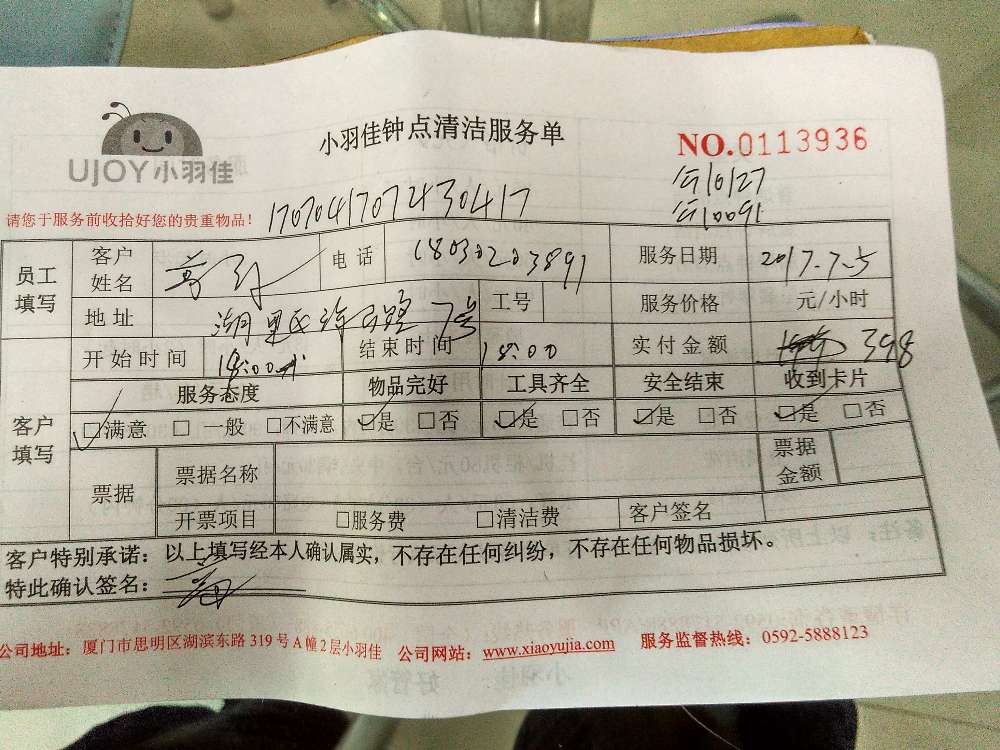 小羽佳钟点清洁服务单
NO.0113936
UJOY小羽佳
请您于服务前收拾好您的贵重物品！
17070417072430417
10127
10091
员工填写 客户姓名 电话 18030203891 服务日期 2017.7.5
地址 湖里区 路7号 工号 服务价格 元/小时
开始时间 14:00 结束时间 18:00 实付金额 398
客户填写 服务态度 物品完好 工具齐全 安全结束 收到卡片
☑满意 □一般 □不满意 ☑是 □否 ☑是 □否 ☑是 □否 ☑是 □否
票据 票据名称 票据金额
开票项目 □服务费 □清洁费 客户签名
客户特别承诺：以上填写经本人确认属实，不存在任何纠纷，不存在任何物品损坏。
特此确认签名：
公司地址：厦门市思明区湖滨东路319号A幢2层小羽佳 公司网站：www.xiaoyujia.com 服务监督热线：0592-5888123